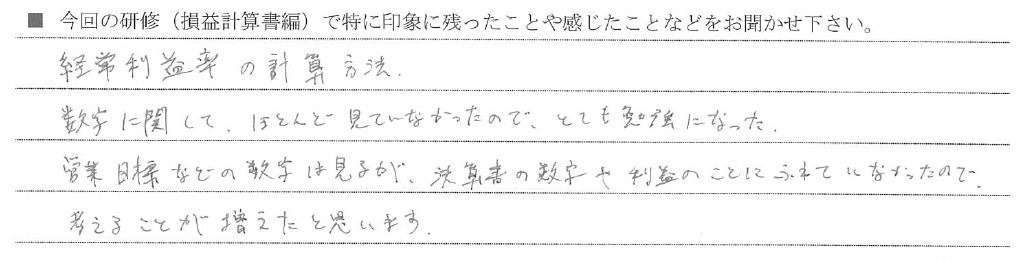 ■ 今回の研修（損益計算書編）で特に印象に残ったことや感じたことなどをお聞かせ下さい。
経常利益率の計算方法.
数字に関して、ほとんど見ていなかったので、とても勉強になった.
営業目標などの数字は見るが、決算書の数字や利益のことにふれていなかったので、
考えることが増えたと思います.